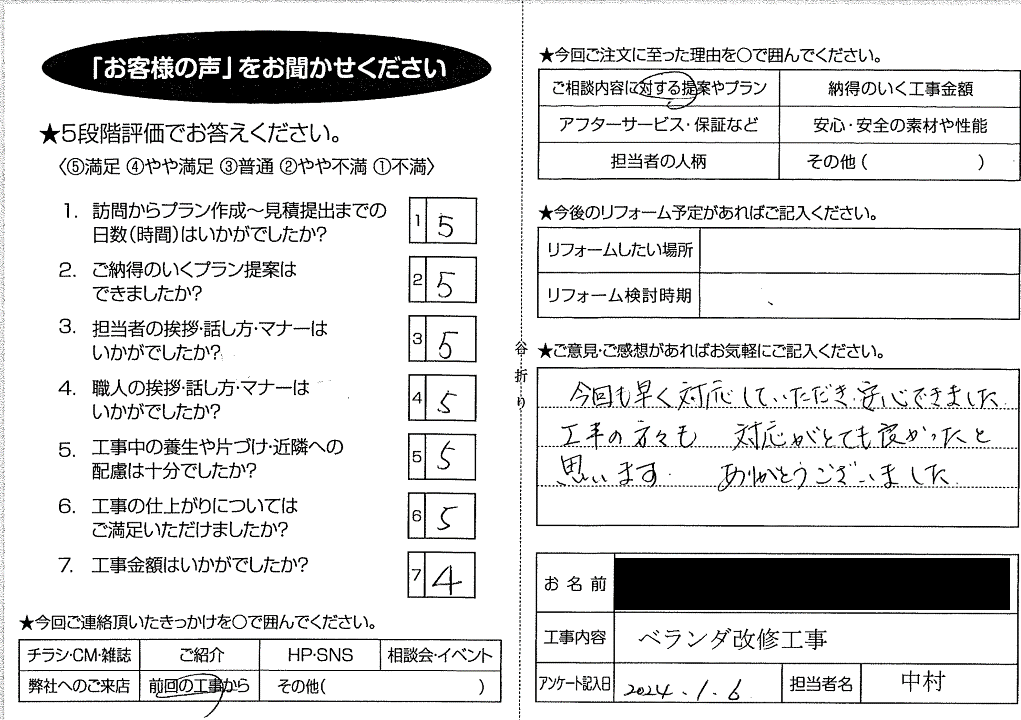 「お客様の声」をお聞かせください
★5段階評価でお答えください。
〈⑤満足 ④やや満足 ③普通 ②やや不満 ①不満〉
1. 訪問からプラン作成～見積提出までの
日数(時間)はいかがでしたか?
1 5
2. ご納得のいくプラン提案は
できましたか?
2 5
3. 担当者の挨拶・話し方・マナーは
いかがでしたか?
3 5
4. 職人の挨拶・話し方・マナーは
いかがでしたか?
4 5
5. 工事中の養生や片づけ・近隣への
配慮は十分でしたか?
5 5
6. 工事の仕上がりについては
ご満足いただけましたか?
6 5
7. 工事金額はいかがでしたか?
7 4
★今回ご連絡頂いたきっかけを〇で囲んでください。
チラシ・CM・雑誌 ご紹介 HP・SNS 相談会・イベント
弊社へのご来店 前回の工事から その他( )
谷折り
★今回ご注文に至った理由を〇で囲んでください。
ご相談内容に対する提案やプラン 納得のいく工事金額
アフターサービス・保証など 安心・安全の素材や性能
担当者の人柄 その他( )
★今後のリフォーム予定があればご記入ください。
リフォームしたい場所
リフォーム検討時期
★ご意見・ご感想があればお気軽にご記入ください。
今回も早く対応していただき安心できました
工事の方々も 対応がとても良かったと
思います ありがとうございました
お名前
工事内容 ベランダ改修工事
アンケート記入日 2024.1.6 担当者名 中村